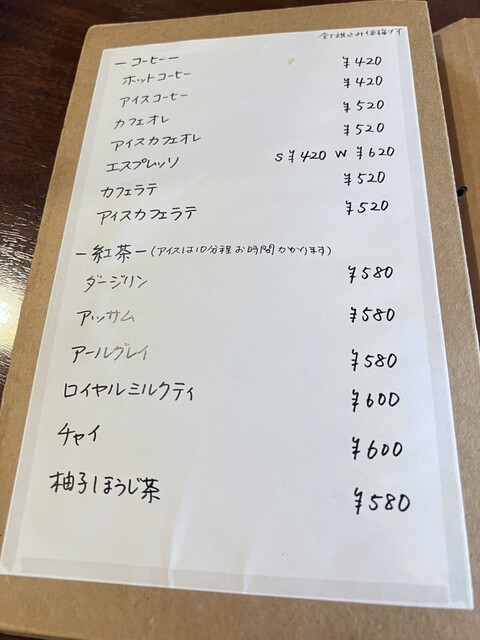 全て税込み価格です
ーコーヒーー
ホットコーヒー ¥420
アイスコーヒー ¥420
カフェオレ ¥520
アイスカフェオレ ¥520
エスプレッソ S ¥420 W ¥620
カフェラテ ¥520
アイスカフェラテ ¥520
ー紅茶ー(アイスは10分程お時間かかります)
ダージリン ¥580
アッサム ¥580
アールグレイ ¥580
ロイヤルミルクティ ¥600
チャイ ¥600
柚子ほうじ茶 ¥580